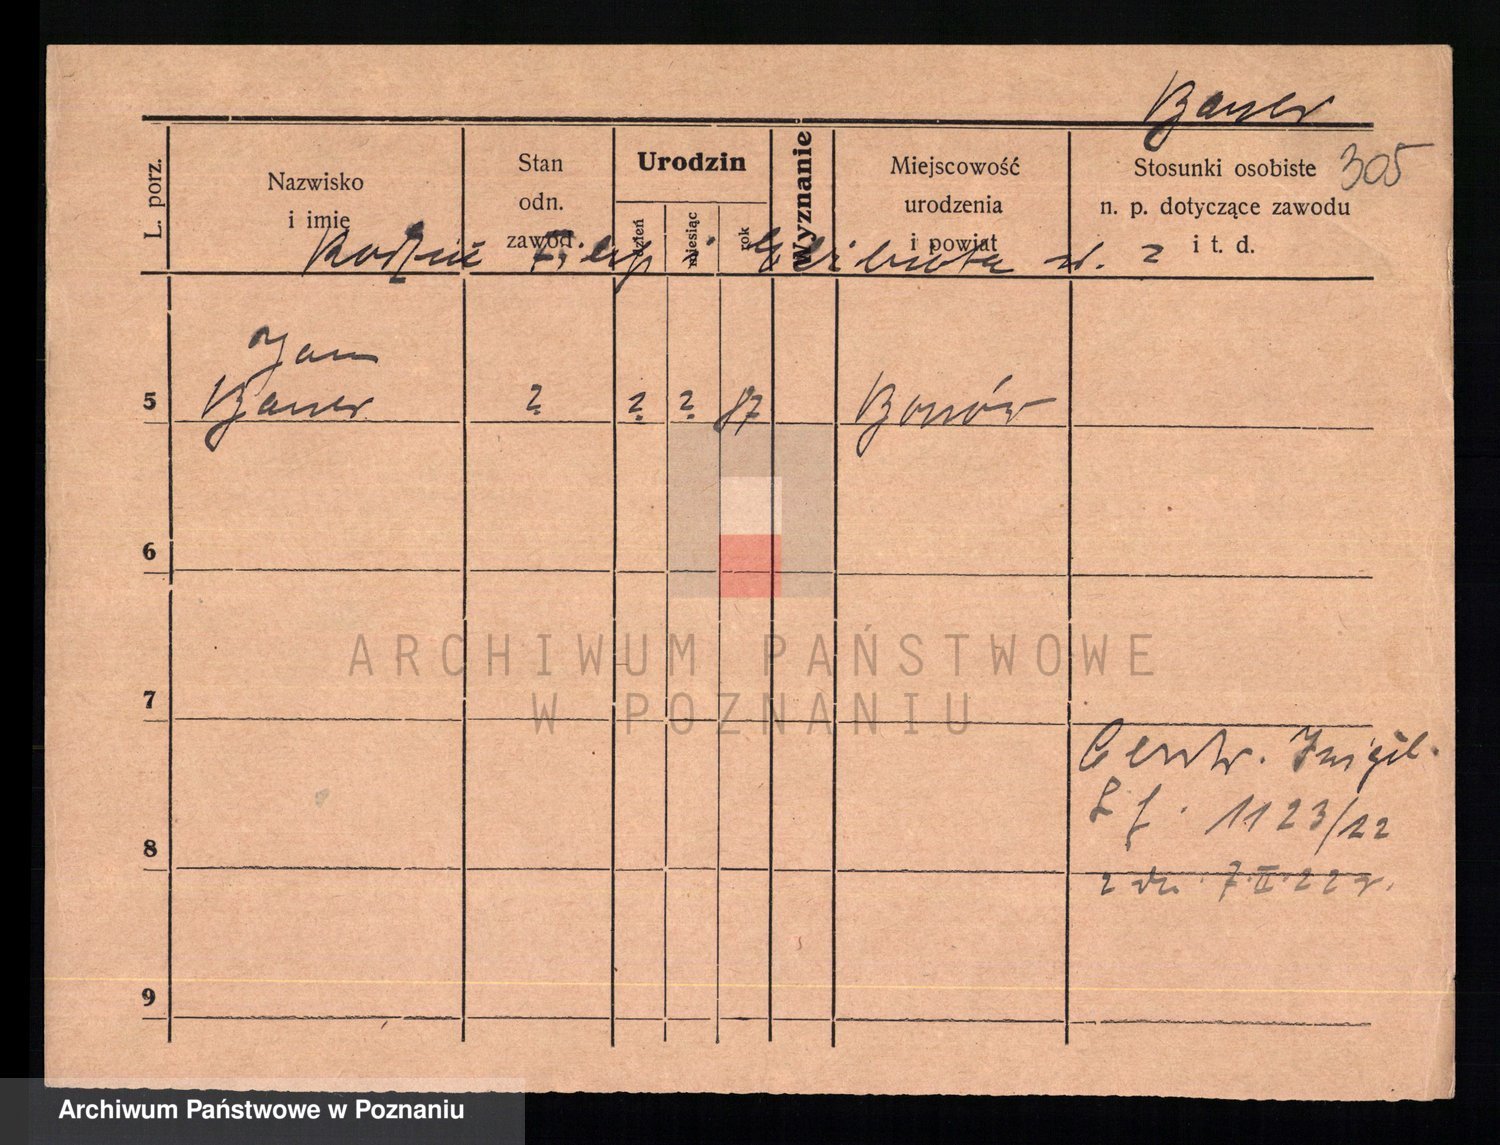 Bauer
305
L. porz.
Nazwisko
i imię
Stan
odn.
zawód.
Urodzin
dzień
miesiąc
rok
Wyznanie
Miejscowość
urodzenia
i powiat
Stosunki osobiste
n. p. dotyczące zawodu
i t. d.
i Elżbieta z d. ?
Jan
5 Bauer ? ? ? 87
6
7
Centr. Inwigil.
1123/22
8
z dn. 7.II.22 r.
9
ARCHIWUM PAŃSTWOWE
W POZNANIU
Archiwum Państwowe w Poznaniu